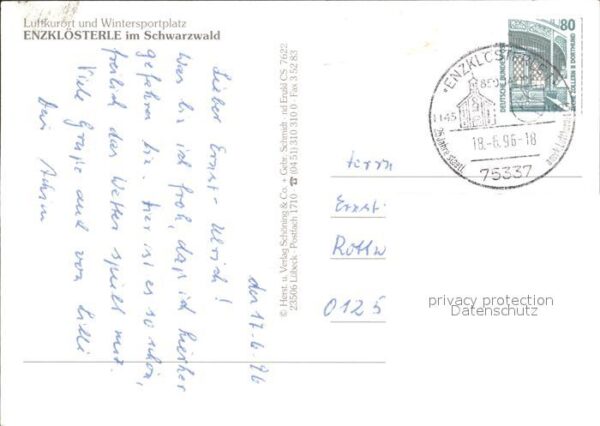 Luftkurort und Wintersportplatz
ENZKLÖSTERLE im Schwarzwald
den 17.6.96
Lieber Ernst-Ulrich!
Was bin ich froh, daß ich hierher
gefahren bin. Hier ist es so schön,
freilich das Wetter spielt mit.
Viele Grüße auch von Lilli
Dein
© Herst. u. Verlag Schöning & Co. + Gebr. Schmidt · ud Enzkl CS 7622
23506 Lübeck · Postfach 1710 · ☎ (0451) 310 310 0 · Fax 3 52 83
80
DEUTSCHE BUNDESPOST
ZECHE ZOLLERN II DORTMUND
ENZKLÖSTERLE
850
1145
18.-6.96-18
75337
Herrn
Ernst-
0125
privacy protection
Datenschutz